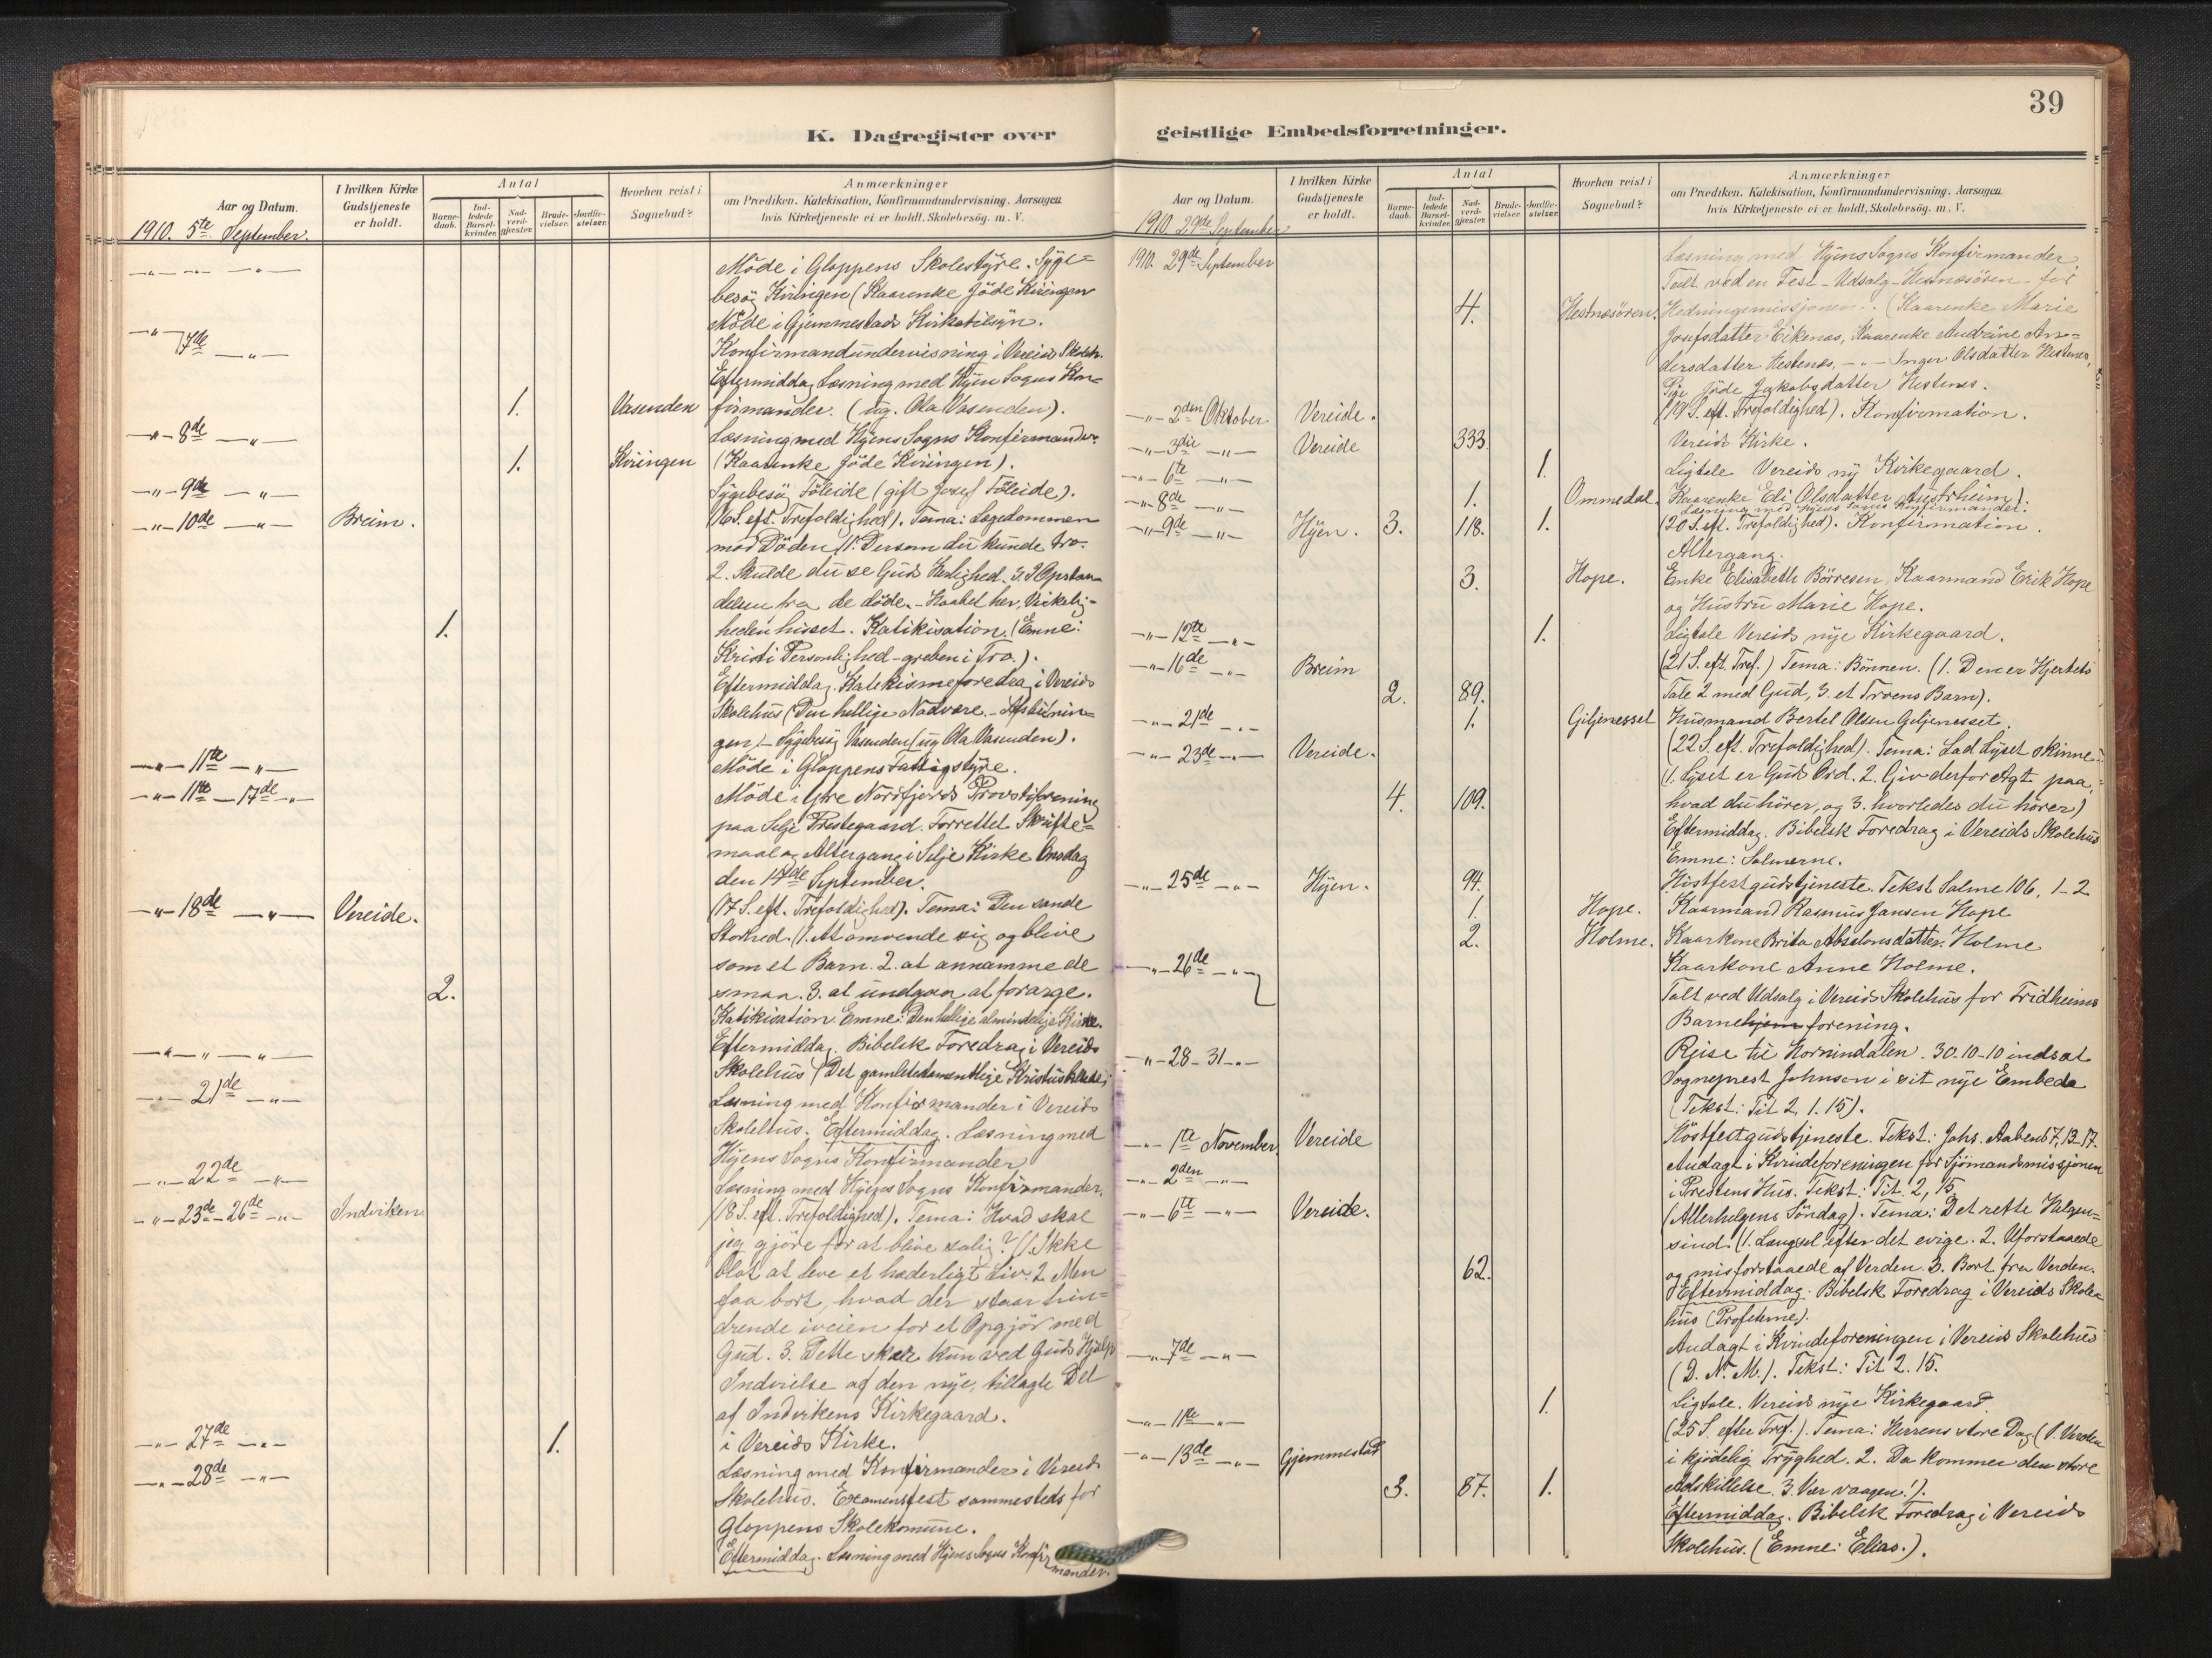 39
K. Dagregister over
geistlige Embedsforretninger.
Aar og Datum.
I hvilken Kirke Gudstjeneste er holdt.
Antal
Barnedaab.
Indledede Barselkvinder.
Nadverdgjæster.
Brudevielser.
Jordfæstelser.
Hvorhen reist i Sognebud?
Anmærkninger
om Prædiken, Katekisation, Konfirmandundervisning, Aarsagen
hvis Kirketjeneste ei er holdt, Skolebesøg. m. V.
1910. 5te September.
—„— —„— —„— Möde i Gloppens Skolestyre. Syge=
besøg Kviingen (Kaarenke Jöde Kviingen
Möde i Gjemmestads Kirketilsyn.
—„— 7de —„— Konfirmandundervisning i Vereids Skoleh.
Eftermiddag Læsning med Hyen Sogns Kon=
1. Vasenden firmander. (ug. Ola Vasenden).
—„— 8de —„— Læsning med Hyens Sogns Konfirmander.
1. Kviingen (Kaarenke Jöde Kviingen).
—„— 9de —„— Sygebesög Töleide (gift Josef Töleide).
—„— 10de —„— Breim. (16 S. eft. Trefoldighed). Tema: Lægedommen
mod Döden (1. Dersom du kunde tro.
2. Skulde du se Guds Herlighed. 3. I Opstan=
delsen fra de döde. - Haabet her, Virkelig=
1. heden hisset. Katikisation. (Emne:
Kristi Personlighed - greben i Tro.).
Eftermiddag. Katekismeforedrag i Vereids
Skolehus (Den hellige Nadvere. - Afslutnin=
gen). - Sygebesög Vasenden (ug Ola Vasenden).
—„— 11te —„— Möde i Gloppens Fattigstyre.
—„— 11te — 17de —„— Möde i Ytre Nordfjords Provstiforening
paa Selje Prestegaard. Forrettet Skrifte=
maal og Altergang i Selje Kirke Onsdag
den 14de September.
—„— 18de —„— Vereide. (17 S. eft. Trefoldighed). Tema: Den sande
Storhed. (1. At omvende sig og blive
som et Barn. 2. at annamme de
2. smaa. 3. at undgaa at forarge.
Katikisation. Emne: Den hellige almindelige Kirke.
—„— „ —„— Eftermiddag. Bibelsk Foredrag i Vereids
Skolehus (Det gamletestamentlige Kristusbillede)
—„— 21de —„— Læsning med Konfirmander i Vereids
Skolehus. Eftermiddag. Læsning med
Hyens Sogns Konfirmander
—„— 22de —„— Læsning med Hyens Sogns Konfirmander.
—„— 23de - 26de —„— Indviken (18 S. eft. Trefoldighed). Tema: Hvad skal
jeg gjöre for at blive salig? (1. Ikke
blot at leve et hæderligt Liv. 2. Men
faa bort, hvad der staar hin=
drende iveien for et Opgjör med
Gud. 3. Dette sker kun ved Guds Hjælp.
Indvielse af den nye, tillagte Del
af Indvikens Kirkegaard.
—„— 27de —„— 1. i Vereids Kirke.
—„— 28de —„— Læsning med Konfirmander i Vereids
Skolehus. Examensfest sammesteds for
Gloppens Skolekomune.
Eftermiddag. Læsning med Hyens Sogns Konfir
mander.
Aar og Datum.
I hvilken Kirke Gudstjeneste er holdt.
Antal
Barnedaab.
Indledede Barselkvinder.
Nadverdgjæster.
Brudevielser.
Jordfæstelser.
Hvorhen reist i Sognebud?
Anmærkninger
om Prædiken, Katekisation, Konfirmandundervisning, Aarsagen
hvis Kirketjeneste ei er holdt, Skolebesög. m. V.
1910. 29de September
1910. 29de September Læsning med Hyens Sogns Konfirmander
Talt ved en Fest - Udsalg - Hestnesören - for
4. Hestnesören. Hedningemissjonen. (Kaarenke Marie
Josefsdatter Eikenæs, Kaarenke Andrine An=
dersdatter Hestenæs, —„— Inger Olsdatter Hestenæs,
Pige Jöde Jakobsdatter Hestenes.
—„— 2den Oktober Vereide. (19 S. eft. Trefoldighed). Konfirmation.
—„— 3die —„— Vereide 333. Vereids Kirke.
—„— 6te —„— 1. Ligtale Vereids ny Kirkegaard.
—„— 8de —„— 1. Ommedal. Kaarenke Eli Olsdatter Austrheim).
Læsning med Hyens Sogns Konfirmander.
—„— 9de —„— Hyen. 3. 118. 1. (20 S. eft. Trefoldighed). Konfirmation.
Altergang.
3. Hope. Enke Elisabeth Börresen, Kaarmand Erik Hope
og Hustru Marie Hope.
—„— 12te —„— 1. Ligtale Vereids nye Kirkegaard.
—„— 16de —„— Breim (21 S. eft. Tref.) Tema: Bönnen. (1. Den er Hjertets
2. 89. Tale 2 med Gud, 3. et Troens Barn).
—„— 21de —„— 1. Giljenesset Husmand Bertel Olsen Giljenesset.
—„— 23de —„— Vereide. (22 S. eft. Trefoldighed). Tema: Lad Lyset skinne:
(1. Lyset er Guds Ord. 2. Giv derfor Agt paa,
4. 109. hvad du hörer, og 3. hvorledes du hörer)
Eftermiddag. Bibelsk Foredrag i Vereids Skolehus
Emne: Salmerne.
—„— 25de —„— Hyen. 94. Höstfestgudstjeneste. Tekst Salme 106, 1-2
1. Hope. Kaarmand Rasmus Jansen Hope
2. Holme. Kaarkone Brita Absalonsdatter Holme
Kaarkone Anne Holme.
—„— 26de —„— Talt ved Udsalg i Vereids Skolehus for Fridheims
Barnehjem forening.
—„— 28-31 —„— Reise til Hornindalen. 30-10-10 indsat
Sogneprest Johnsen i sit nye Embede
(Tekst: Tit 2, 1. 15).
—„— 1te November Vereide Höstfestgudstjeneste. Tekst: Johs. Aabenb 7, 13-17.
—„— 2den —„— Andagt i Kvindeforeningen for Sjömandsmissjonen
i Prestens Hus. Tekst: Tit. 2, 15
—„— 6te —„— Vereide. (Allerhelgens Söndag). Tema: Det rette Helgen=
sind. (1. Længsel efter det evige. 2. Uforstaaede
62. og misforstaaede af Verden. 3. Bort fra Verden.
Eftermiddag. Bibelsk Foredrag i Vereids Skole=
hus (Profeterne).
—„— 7de —„— Andagt i Kvindeforeningen i Vereids Skolehus
(D. N. M.). Tekst: Tit 2. 15.
—„— 11te —„— 1. Ligtale. Vereids nye Kirkegaard.
—„— 13de —„— Gjemmestad (25 S. efter Tref.). Tema: Herrens store Dag (1. Verden
i kjödelig Tryghed. 2. Da kommer den store
3. 87. 1. Adskillelse. 3. Vær vaagen!).
Eftermiddag. Bibelsk Foredrag i Vereids
Skolehus. (Emne: Elias.).